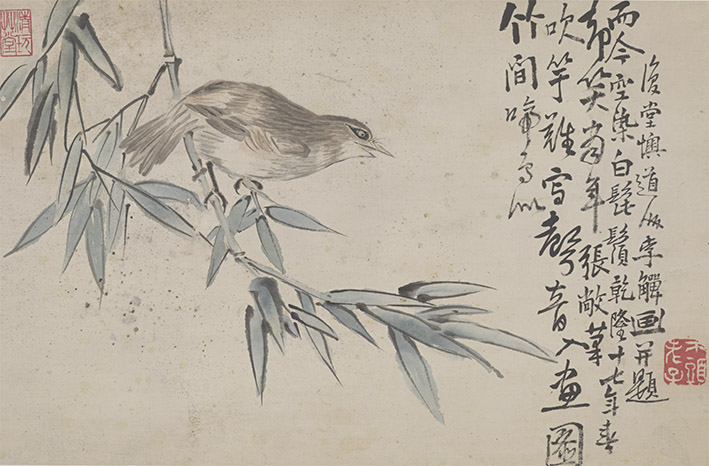 竹間啼鳥似
吹竽難寫聲音入畫圖
却笑當年張敞筆
而今空染白髭鬚乾隆十七年春
復堂懊道人李鱓畫并題